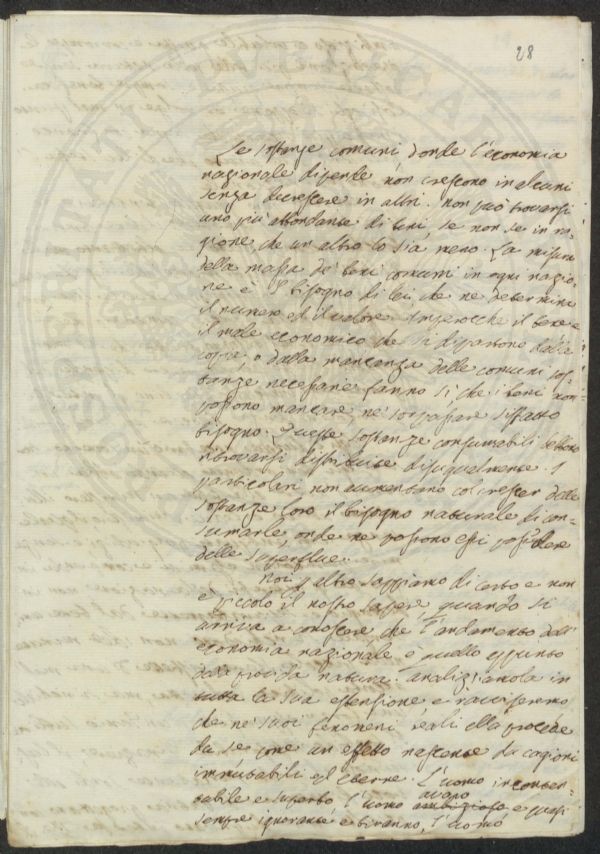 28
Le sostanze comuni donde l'economia
nazionale dipende non crescono in alcuni
senza decrescere in altri. non può trovarsi
uno più abbondante di beni, se non se in ra-
gione, che un altro lo sia meno. La misura
della massa de' beni comuni in ogni nazio-
ne è il bisogno di lei che ne determina
il numero ed il valore. Imperocchè il bene e
il male economico che si dipartono dalla
copia, o dalla mancanza delle comuni sos-
tanze necessarie fanno sì che i beni non
possono mancare, nè sorpassare siffatto
bisogno. Queste sostanze consumabili debbono
ritrovarsi distribuite disugualmente. I
particolari non aumentano col crescer delle
sostanze loro il bisogno naturale di con-
sumarle, onde ne possono essi possedere
delle superflue.
Noi per altro sappiamo di certo e non
è piccolo il nostro sapere, quando si
arriva a conoscere che l'andamento dell'
economia nazionale è quello appunto
della provida natura. Analizziamola in
tutta la sua estensione, e ravviseremo
che ne' suoi fenomeni reali ella procede
da se come un effetto nascente da cagioni
immutabili ed eterne. L'uomo inconten-
tabile e superbo, l'uomo avaro ambizioso e quasi
sempre ignorante e tiranno, l'uomo